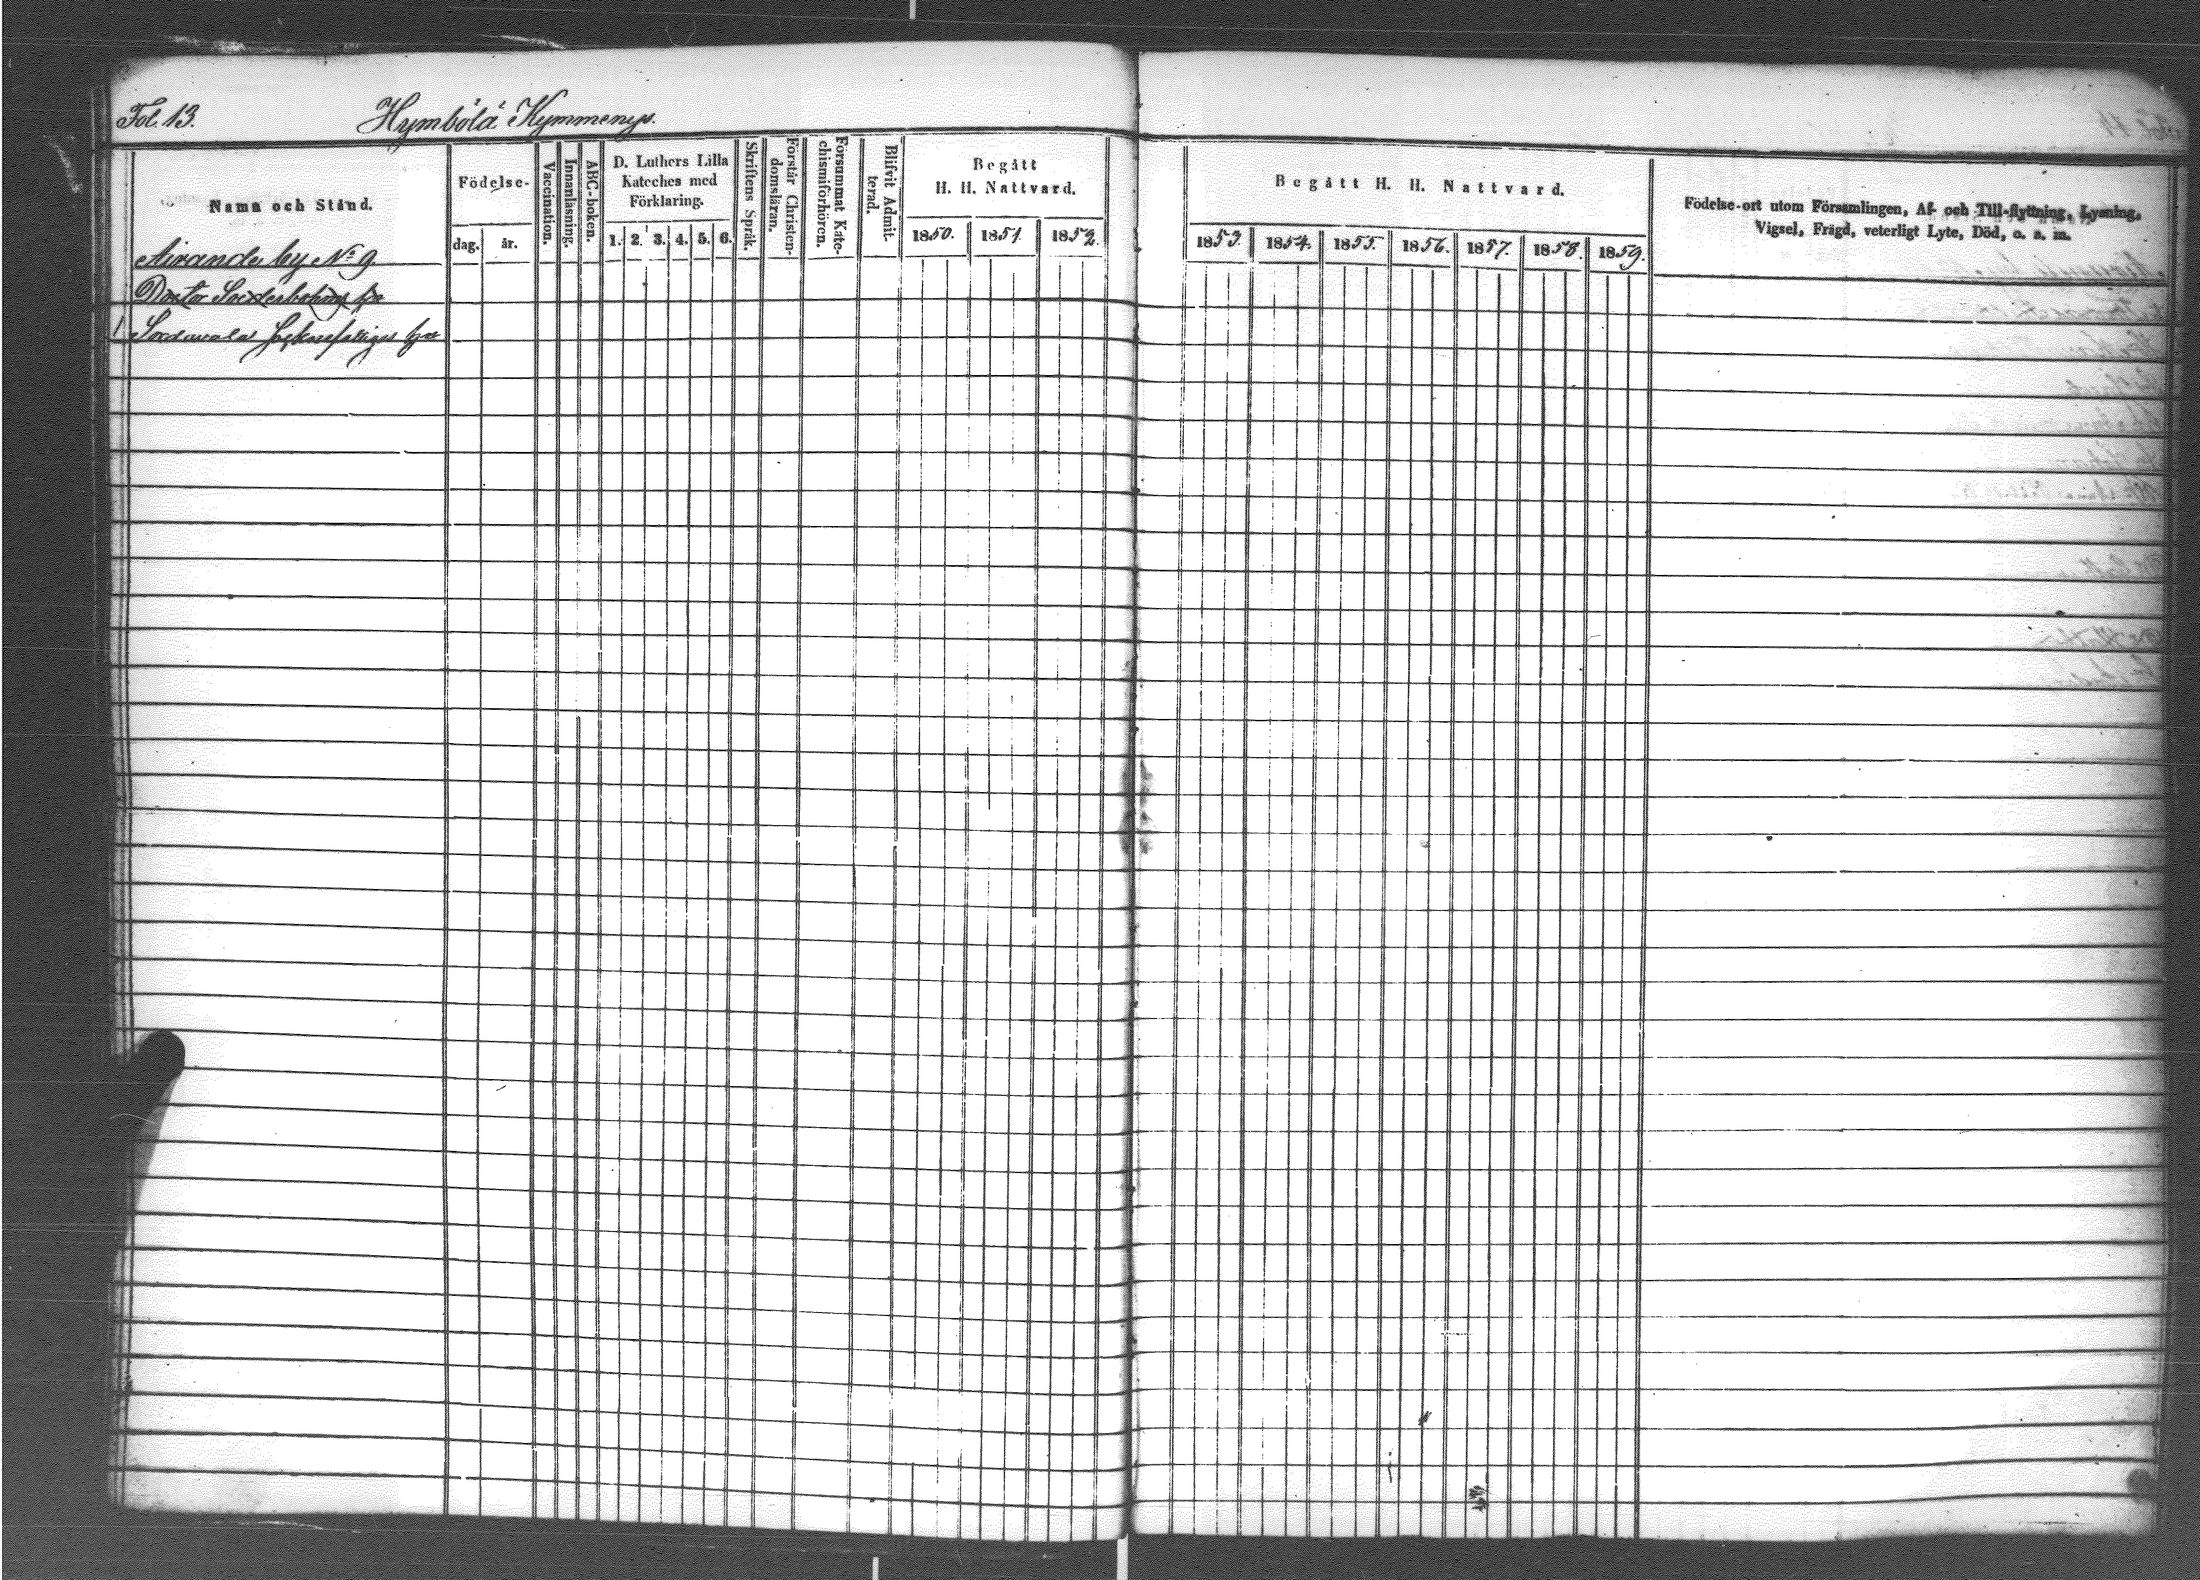 Fol. 13.
Hymbölä Kymmenys.
Namn och Stånd.
Födelse-
dag.
år.
Vaccination.
Innanläsning.
ABC-boken.
D. Luthers Lilla
Kateches med
Förklaring.
1. 2. 3. 4. 5. 6.
Skriftens Språk.
Förstår Christen-
domsläran.
Försummat Kate-
chismiförhören.
Blifvit Admit-
terad.
Begått
H. H. Nattvard.
1850. 1851. 1852.
Begått H. H. Nattvard.
1853. 1854. 1855. 1856. 1857. 1858. 1859.
Födelse-ort utom Församlingen, Af- och Till-flyttning, Lysning,
Vigsel, Frägd, veterligt Lyte, Död, o. s. m.
Airanda by No 9